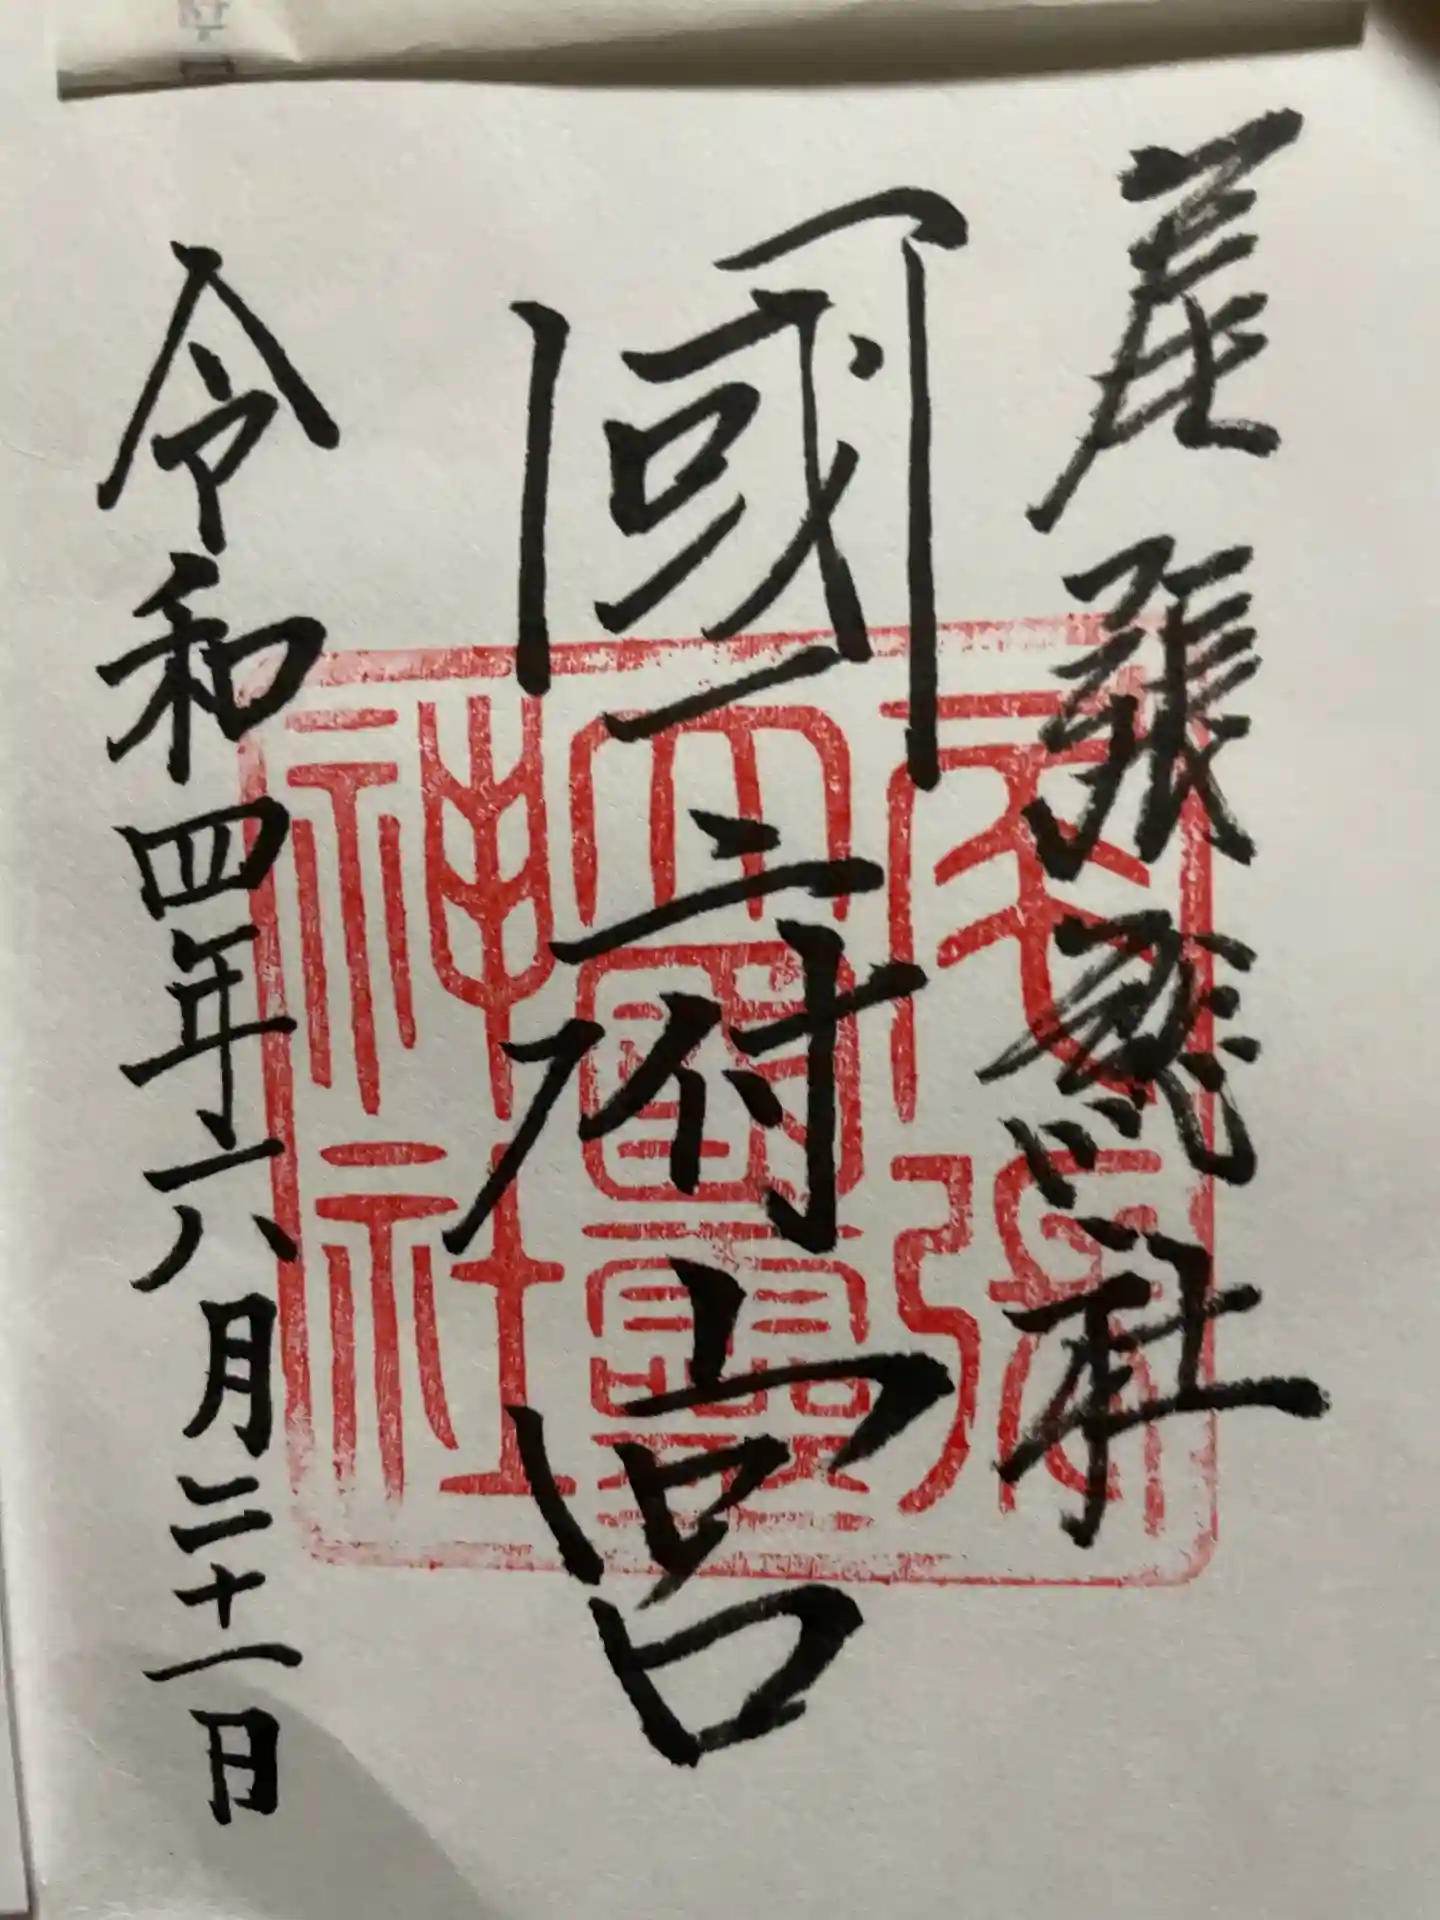 尾張總社
國府宮
令和四年六月二十一日
尾張
大國霊
神社